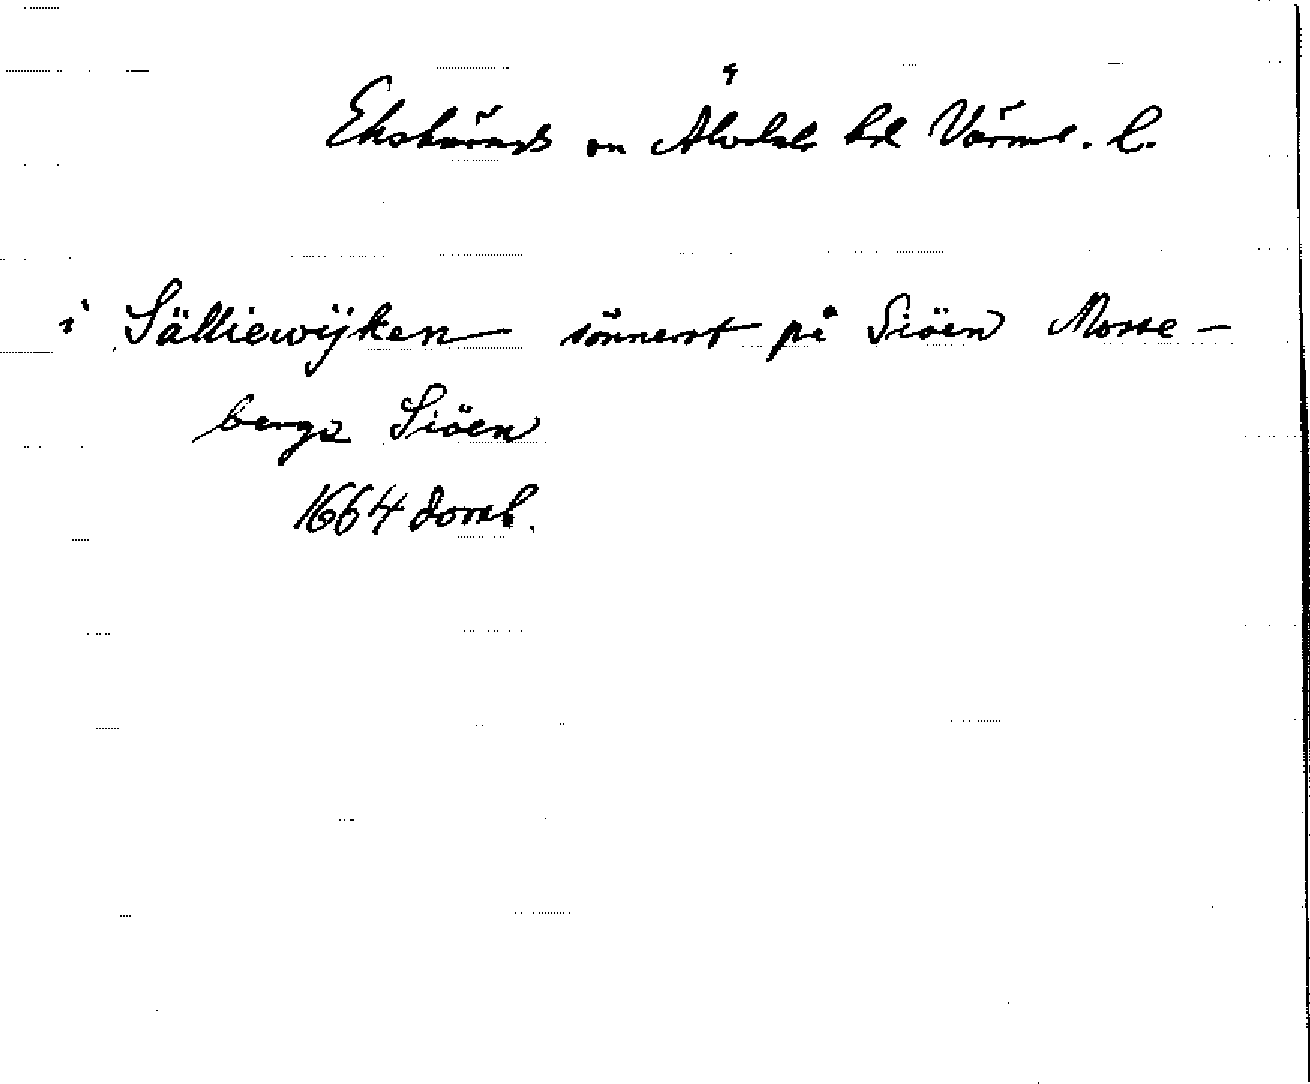 Ekshärads sn Älvdals hd Värml. l.
i Sälliewijken sönnerst på Siöen Mosse-
bergz Siöen
1664 domb.